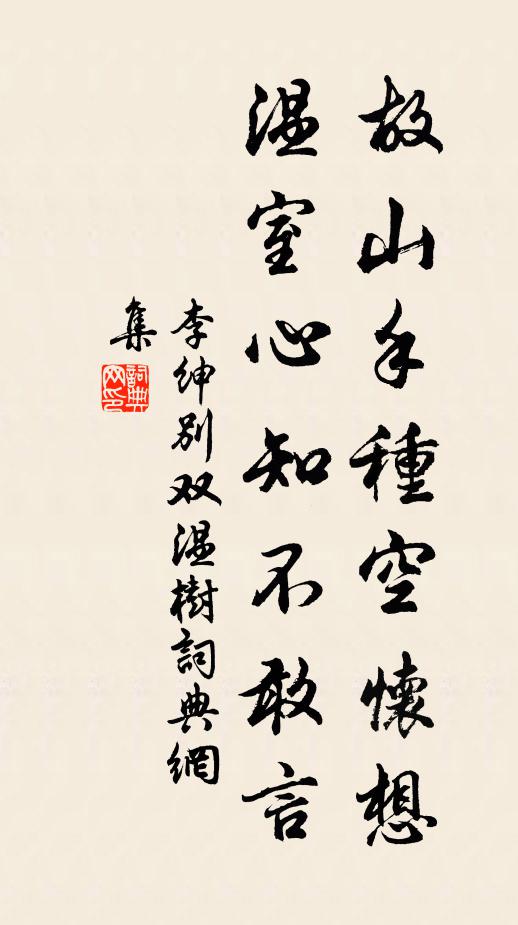 故山手種空懷想
温室心知不敢言
李紳别双温樹詞典網
集
詞典
网印